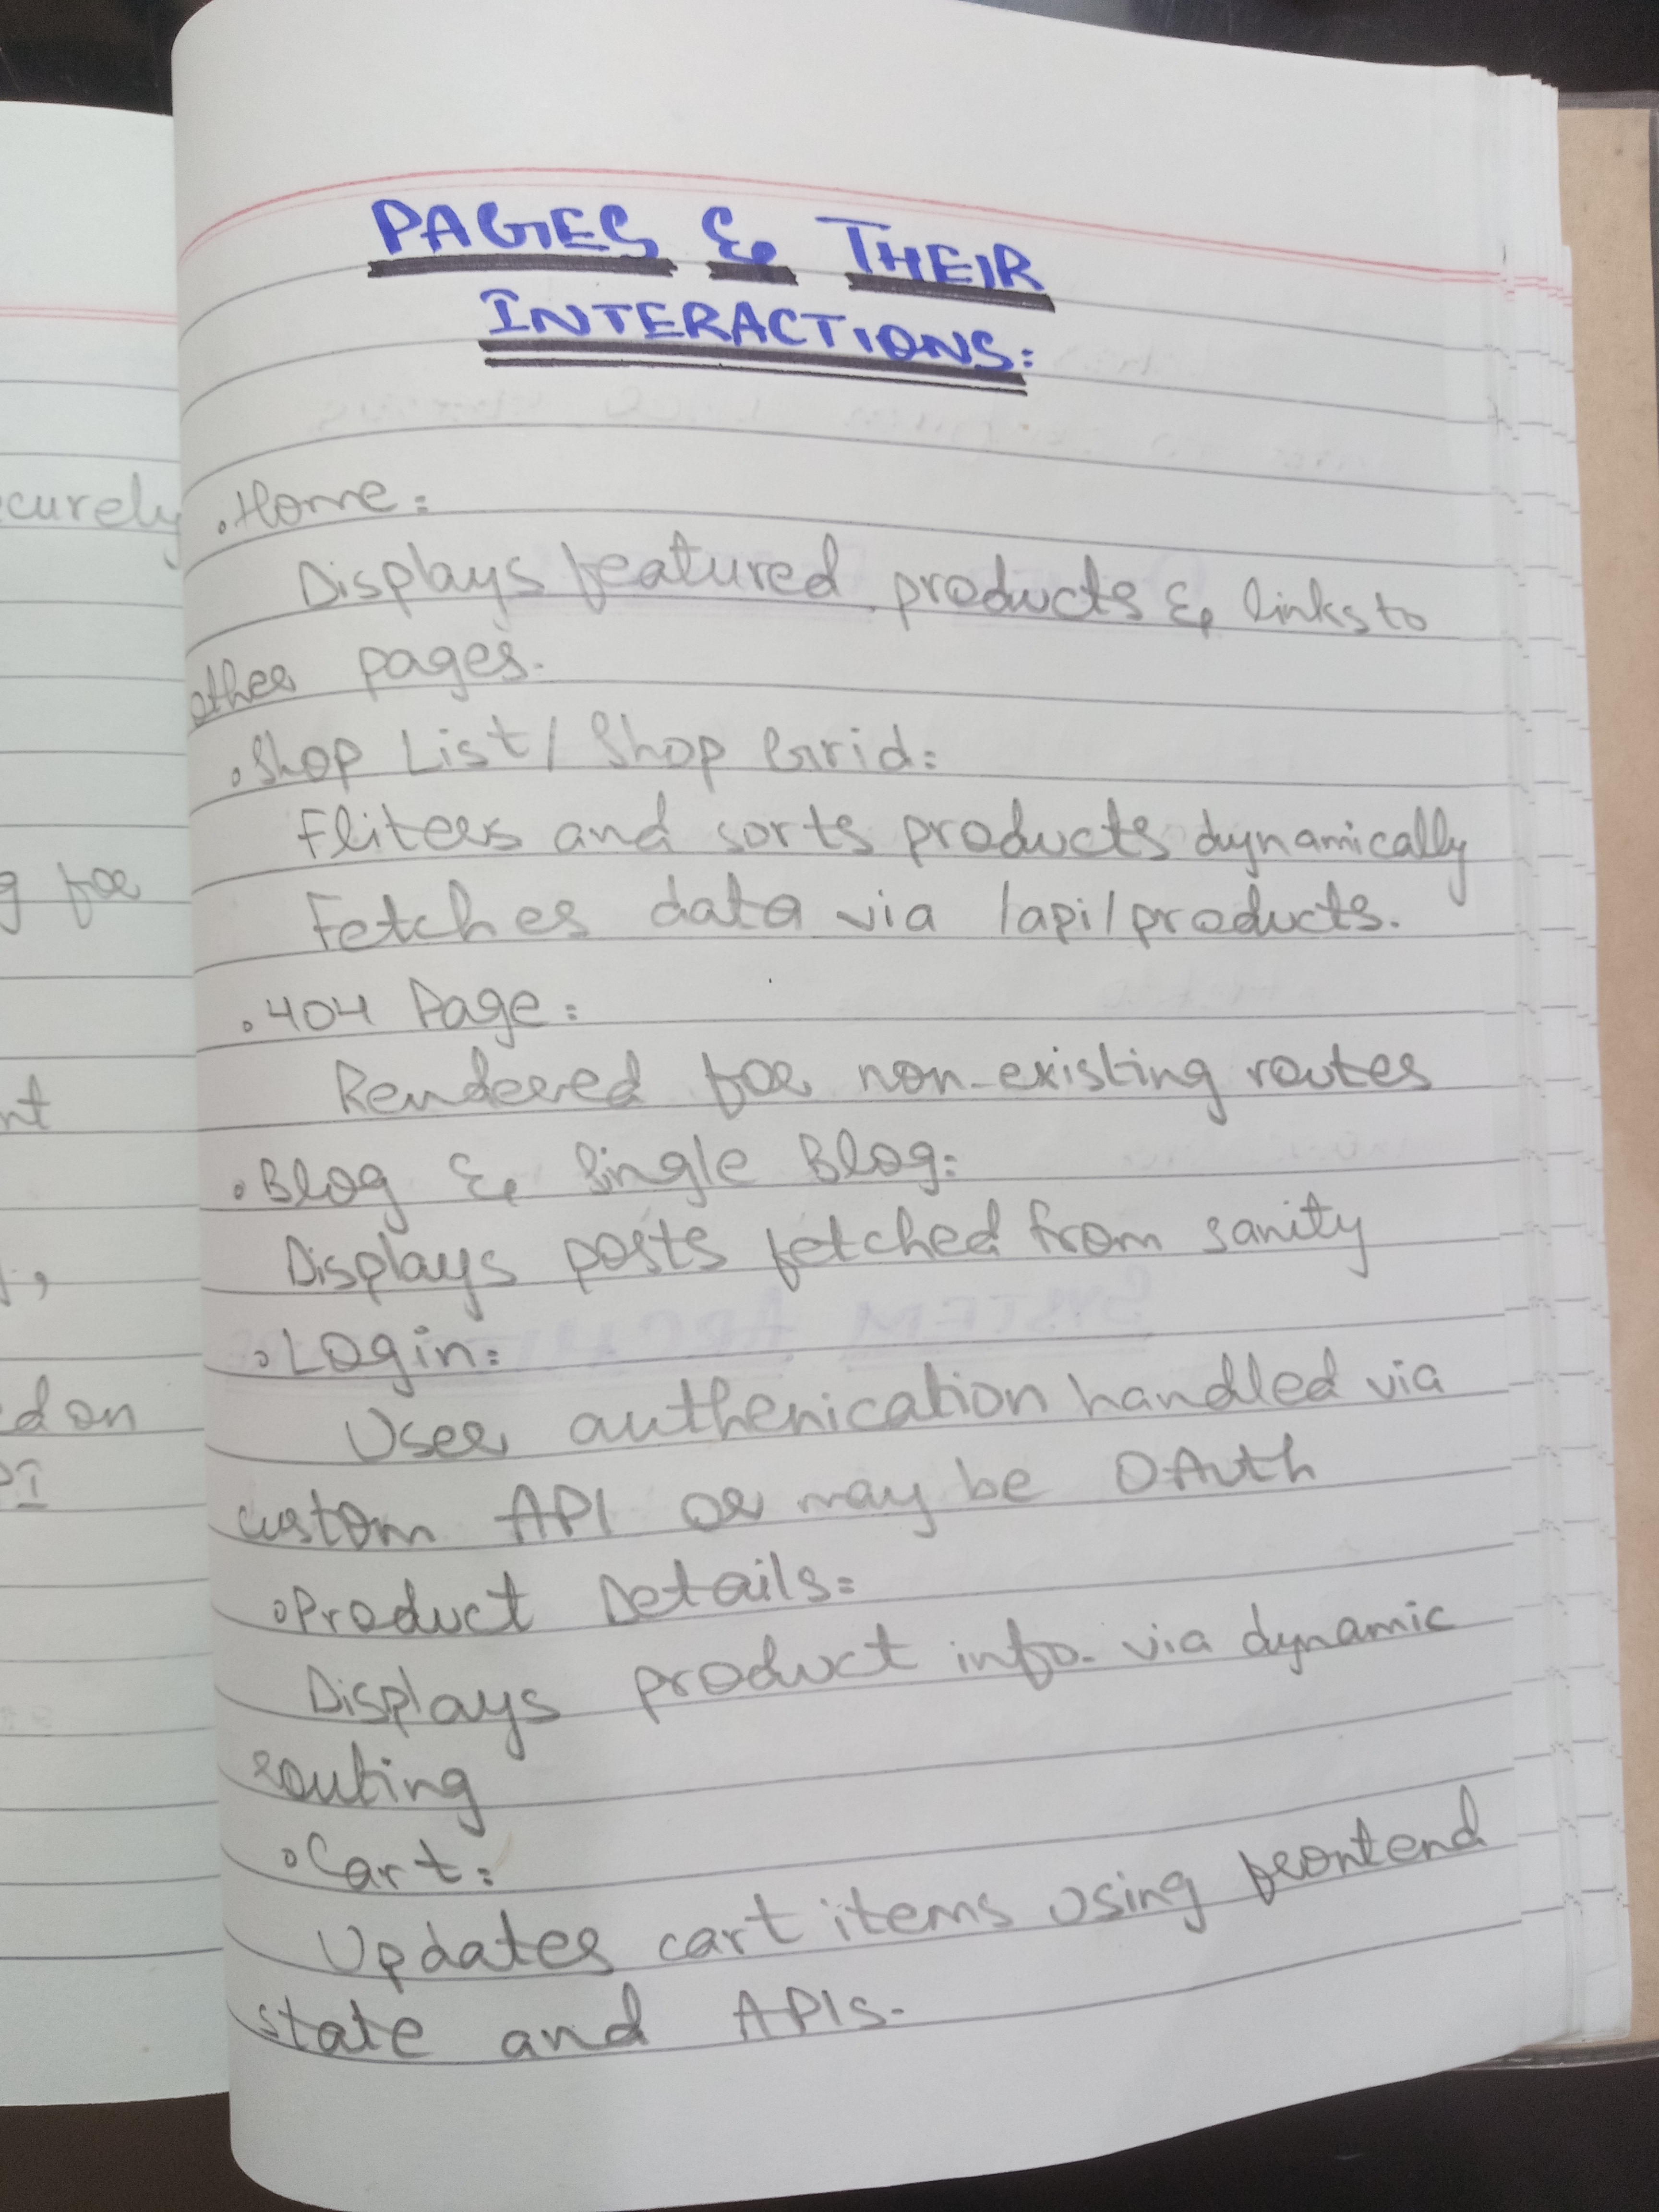 PAGES & THEIR
INTERACTIONS:
• Home:
Displays featured products & links to
other pages.
• Shop List / Shop Grid:
Fliters and sorts products dynamically
Fetches data via /api/products.
• 404 Page:
Rendered for non-existing routes
• Blog & Single Blog:
Displays posts fetched from sanity
• Login:
User authenication handled via
custom API or may be OAuth
• Product Details:
Displays product info. via dynamic
routing
• Cart:
Updates cart items using frontend
state and APIs.
curely
g for
nt
,
d on
PI